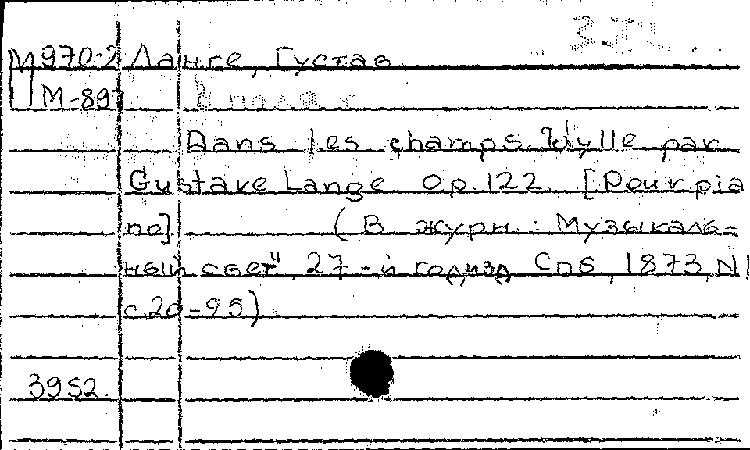 М970-2 Ланге, Густав
М-897 В полях
Dans les champs. Idylle par
Gustave Lange Op. 122. [Pour pia
no] (В журн.: Музыкаль-
ный свет", 27-й год изд. Спб, 1873, N1
с 20-95)
3952.